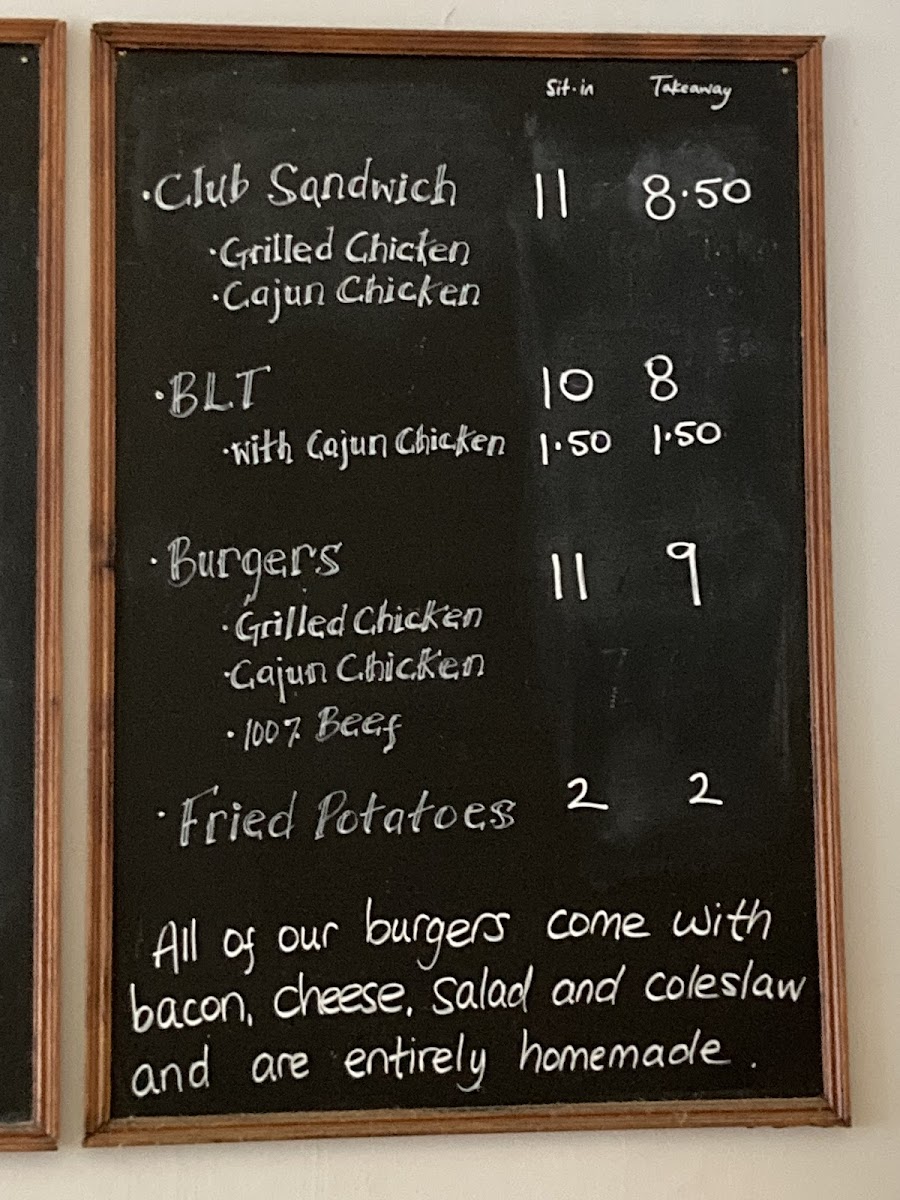 Sit-in Takeaway
·Club Sandwich 11 8.50
·Grilled Chicken
·Cajun Chicken
·BLT 10 8
·with Cajun Chicken 1.50 1.50
·Burgers 11 9
·Grilled Chicken
·Cajun Chicken
·100% Beef
·Fried Potatoes 2 2
All of our burgers come with
bacon, cheese, salad and coleslaw
and are entirely homemade.